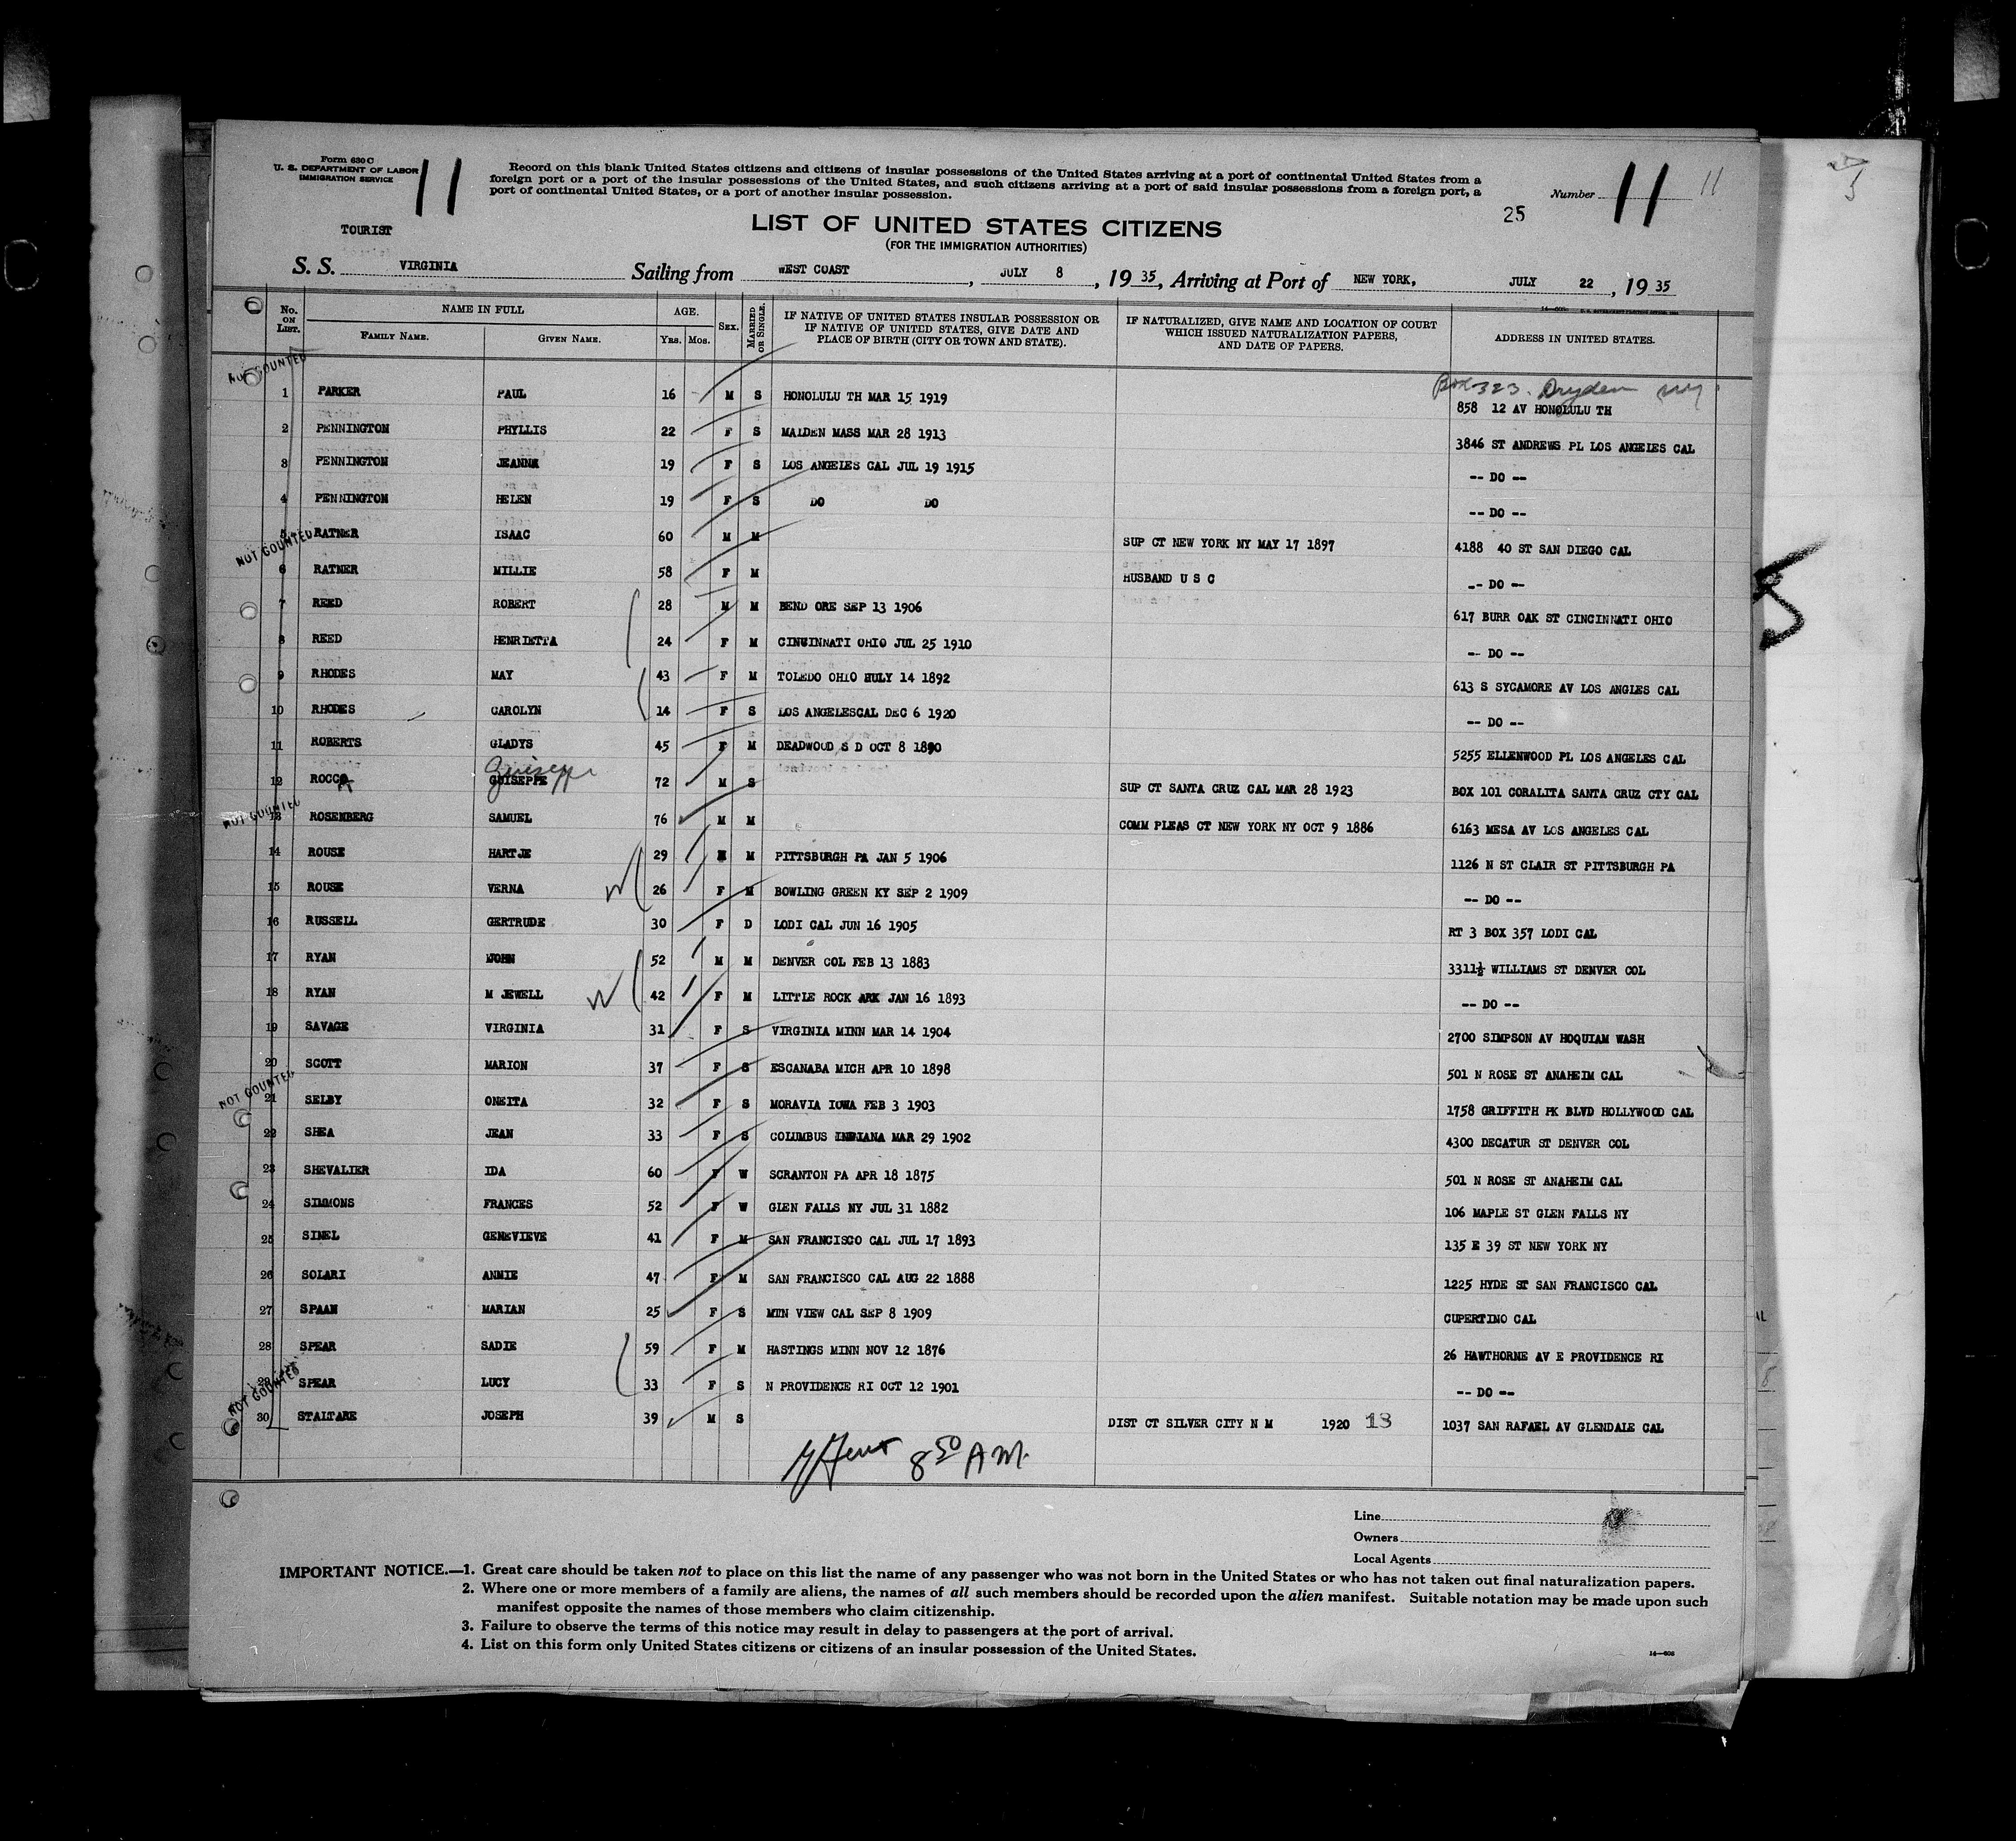 Form 630 C
U. S. DEPARTMENT OF LABOR
IMMIGRATION SERVICE
11
Record on this blank United States citizens and citizens of insular possessions of the United States arriving at a port of continental United States from a
foreign port or a port of the insular possessions of the United States, and such citizens arriving at a port of said insular possessions from a foreign port, a
port of continental United States, or a port of another insular possession.
Number 11 11
25
TOURIST
LIST OF UNITED STATES CITIZENS
(FOR THE IMMIGRATION AUTHORITIES)
S. S. VIRGINIA Sailing from WEST COAST, JULY 8, 19 35, Arriving at Port of NEW YORK, JULY 22, 19 35
No. ON LIST. NAME IN FULL FAMILY NAME. GIVEN NAME. AGE. Yrs. Mos. SEX. MARRIED OR SINGLE. IF NATIVE OF UNITED STATES INSULAR POSSESSION OR IF NATIVE OF UNITED STATES, GIVE DATE AND PLACE OF BIRTH (CITY OR TOWN AND STATE). IF NATURALIZED, GIVE NAME AND LOCATION OF COURT WHICH ISSUED NATURALIZATION PAPERS, AND DATE OF PAPERS. ADDRESS IN UNITED STATES.
NOT COUNTED
Box 323. Dryden NY
1 PARKER PAUL 16 M S HONOLULU TH MAR 15 1919 858 12 AV HONOLULU TH
2 PENNINGTON PHYLLIS 22 F S MALDEN MASS MAR 28 1913 3846 ST ANDREWS PL LOS ANGELES CAL
3 PENNINGTON JEANNA 19 F S LOS ANGELES CAL JUL 19 1915 -- DO --
4 PENNINGTON HELEN 19 F S DO DO -- DO --
NOT COUNTED
5 RATNER ISAAC 60 M M SUP CT NEW YORK NY MAY 17 1897 4188 40 ST SAN DIEGO CAL
6 RATNER MILLIE 58 F M HUSBAND U S C -- DO --
7 REED ROBERT 28 M M BEND ORE SEP 13 1906 617 BURR OAK ST CINCINNATI OHIO
8 REED HENRIETTA 24 F M CINCINNATI OHIO JUL 25 1910 -- DO --
9 RHODES MAY 43 F M TOLEDO OHIO HULY 14 1892 613 S SYCAMORE AV LOS ANGLES CAL
10 RHODES CAROLYN 14 F S LOS ANGELESCAL DEC 6 1920 -- DO --
11 ROBERTS GLADYS 45 F M DEADWOOD S D OCT 8 1890 5255 ELLENWOOD PL LOS ANGELES CAL
12 ROCCO GUISEPPE 72 M S SUP CT SANTA CRUZ CAL MAR 28 1923 BOX 101 CORALITA SANTA CRUZ CTY CAL
NOT COUNTED
13 ROSENBERG SAMUEL 76 M M COMM PLEAS CT NEW YORK NY OCT 9 1886 6163 MESA AV LOS ANGELES CAL
14 ROUSE HARTJE 29 M M PITTSBURGH PA JAN 5 1906 1126 N ST CLAIR ST PITTSBURGH PA
15 ROUSE VERNA 26 F M BOWLING GREEN KY SEP 2 1909 -- DO --
16 RUSSELL GERTRUDE 30 F D LODI CAL JUN 16 1905 RT 3 BOX 357 LODI CAL
17 RYAN JOHN 52 M M DENVER COL FEB 13 1883 3311½ WILLIAMS ST DENVER COL
18 RYAN M JEWELL 42 F M LITTLE ROCK ARK JAN 16 1893 -- DO --
19 SAVAGE VIRGINIA 31 F S VIRGINIA MINN MAR 14 1904 2700 SIMPSON AV HOQUIAM WASH
20 SCOTT MARION 37 F S ESCANABA MICH APR 10 1898 501 N ROSE ST ANAHEIM CAL
NOT COUNTED
21 SELBY ONEITA 32 F S MORAVIA IOWA FEB 3 1903 1758 GRIFFITH PK BLVD HOLLYWOOD CAL
22 SHEA JEAN 33 F S COLUMBUS INDIANA MAR 29 1902 4300 DECATUR ST DENVER COL
23 SHEVALIER IDA 60 F W SCRANTON PA APR 18 1875 501 N ROSE ST ANAHEIM CAL
24 SIMMONS FRANCES 52 F W GLEN FALLS NY JUL 31 1882 106 MAPLE ST GLEN FALLS NY
25 SINEL GENEVIEVE 41 F M SAN FRANCISCO CAL JUL 17 1893 135 E 39 ST NEW YORK NY
26 SOLARI ANNIE 47 F M SAN FRANCISCO CAL AUG 22 1888 1225 HYDE ST SAN FRANCISCO CAL
27 SPAAN MARIAN 25 F S MTN VIEW CAL SEP 8 1909 CUPERTINO CAL
28 SPEAR SADIE 59 F M HASTINGS MINN NOV 12 1876 26 HAWTHORNE AV E PROVIDENCE RI
29 SPEAR LUCY 33 F S N PROVIDENCE RI OCT 12 1901 -- DO --
NOT COUNTED
30 STALTARE JOSEPH 39 M S DIST CT SILVER CITY N M 1920 13 1037 SAN RAFAEL AV GLENDALE CAL
8 50 AM.
Line
Owners
Local Agents
IMPORTANT NOTICE.—1. Great care should be taken not to place on this list the name of any passenger who was not born in the United States or who has not taken out final naturalization papers.
2. Where one or more members of a family are aliens, the names of all such members should be recorded upon the alien manifest. Suitable notation may be made upon such
manifest opposite the names of those members who claim citizenship.
3. Failure to observe the terms of this notice may result in delay to passengers at the port of arrival.
4. List on this form only United States citizens or citizens of an insular possession of the United States.